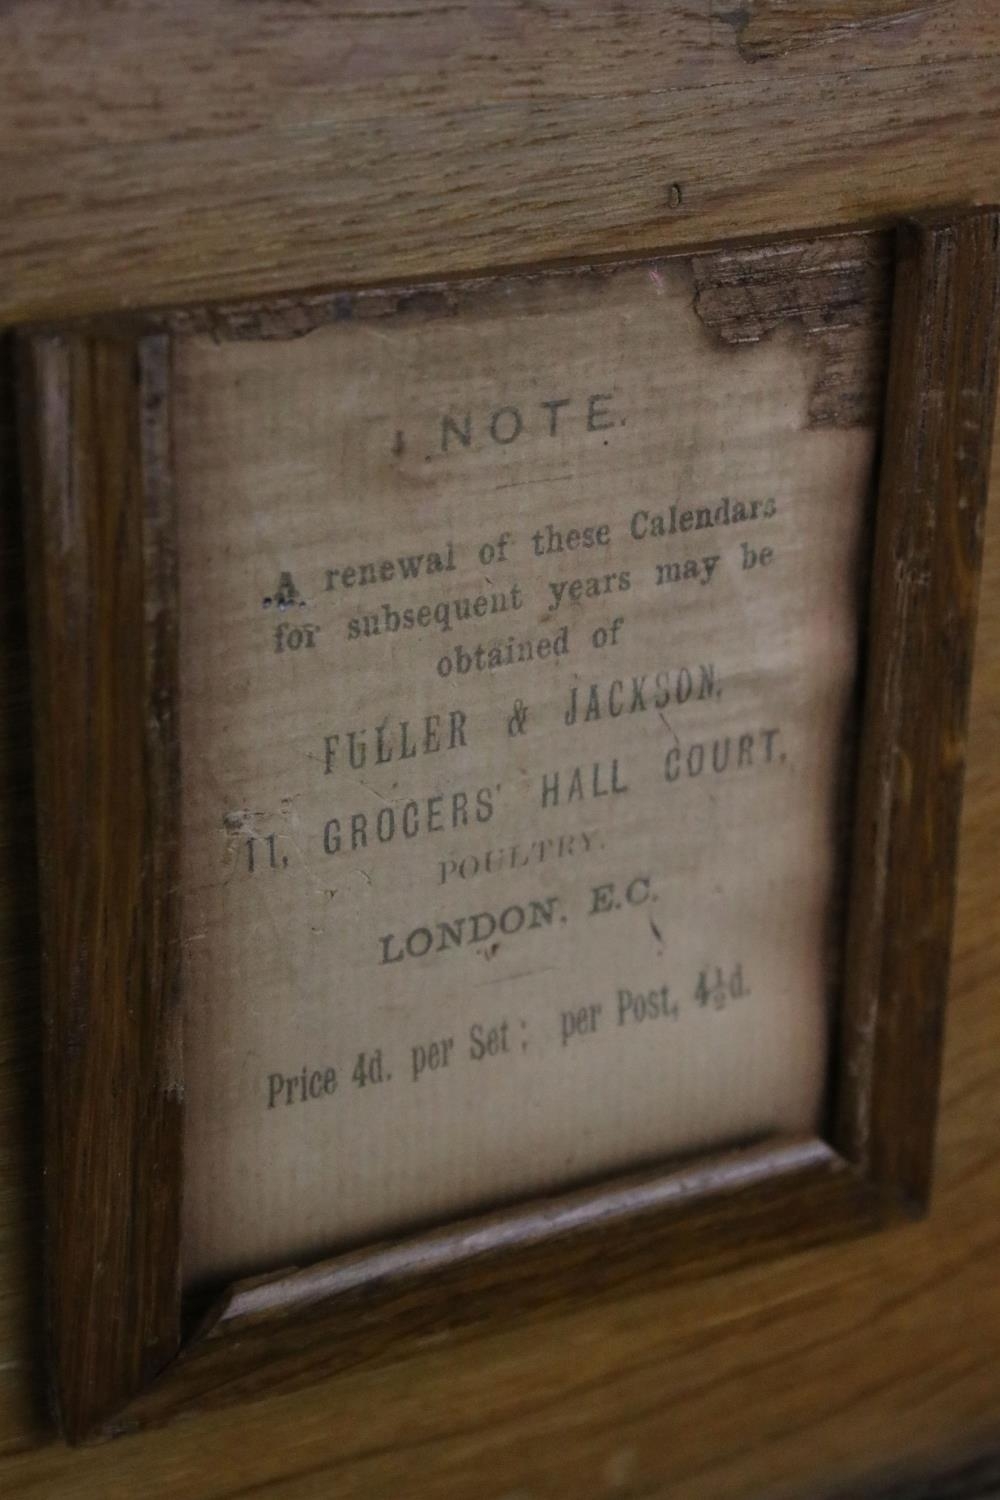 NOTE.
A renewal of these Calendars
for subsequent years may be
obtained of
FULLER & JACKSON,
11, GROCERS' HALL COURT,
POULTRY,
LONDON, E.C.
Price 4d. per Set; per Post, 4½d.